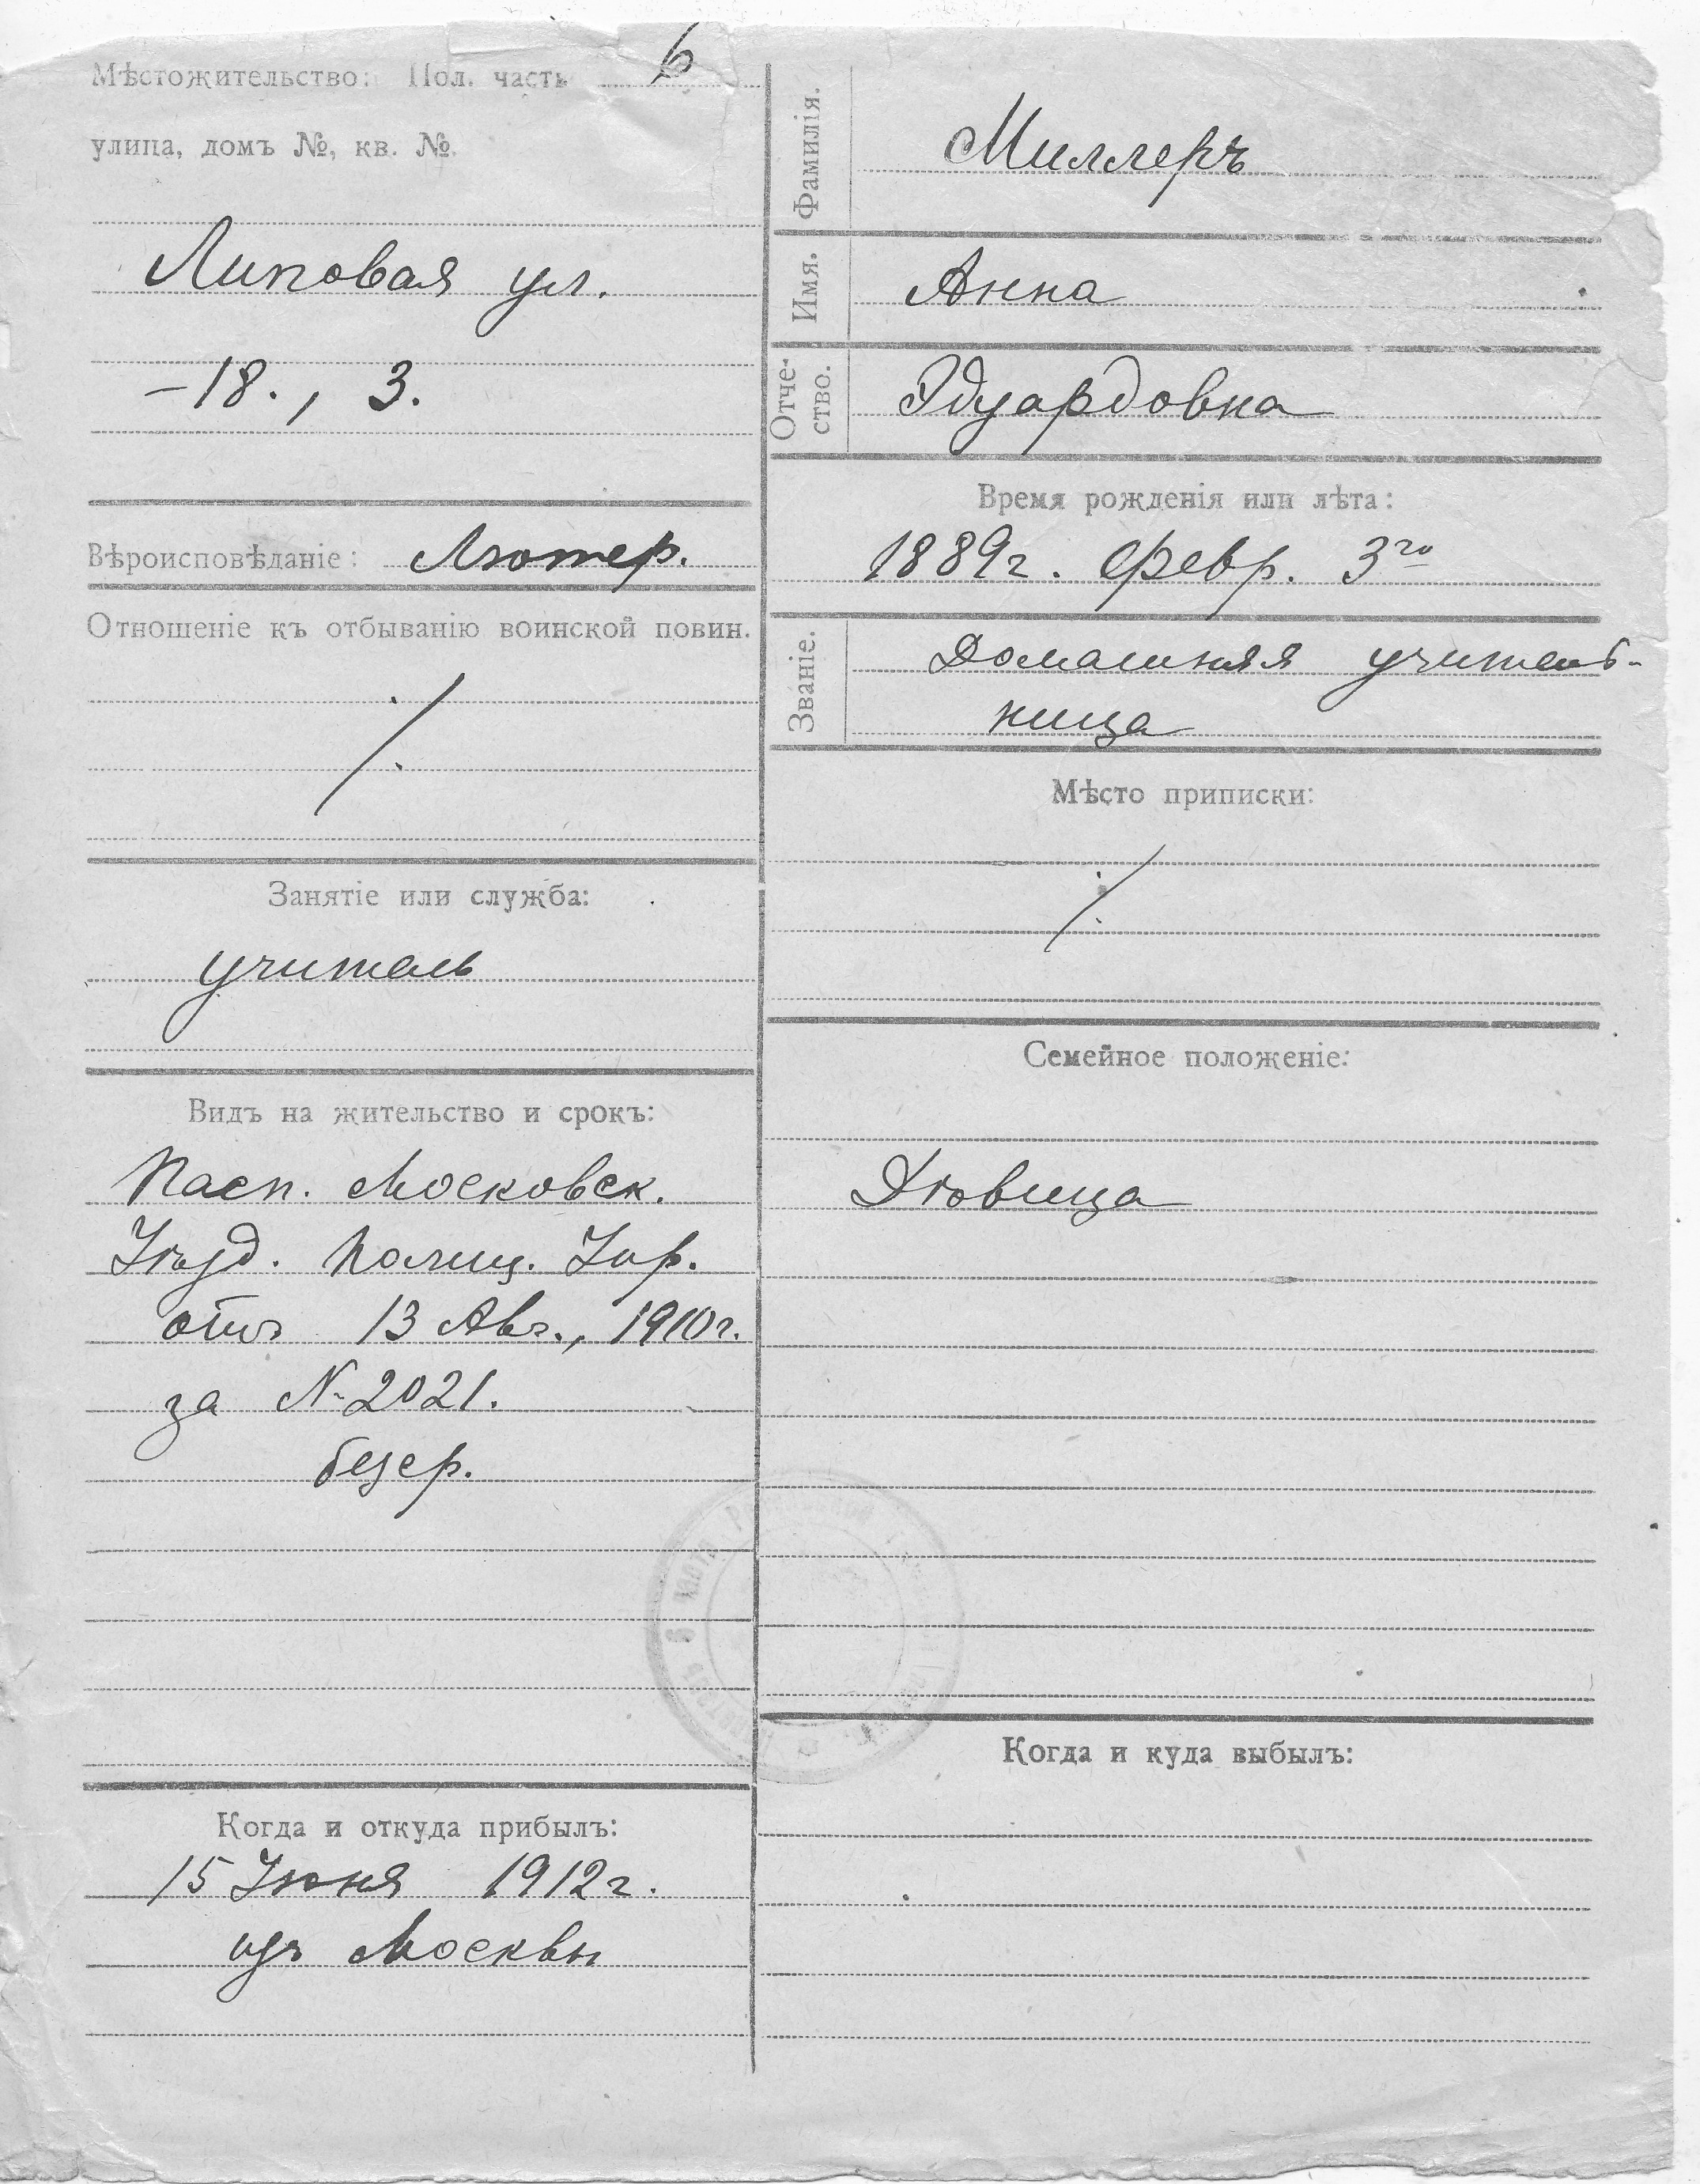 Мѣстожительство: Пол. часть 6
улица, домъ №, кв. №
Липовая ул.
–18., 3.
Вѣроисповѣданіе: Лютер.
Отношеніе къ отбыванію воинской повин.
Занятіе или служба:
учитель
Видъ на жительство и срокъ:
Пасп. Московск.
Уѣзд. Полиц. Упр.
отъ 13 Авг., 1910г.
за № 2021.
безср.
Когда и откуда прибылъ:
15 Іюня 1912г.
изъ Москвы
Фамилія.
Миллеръ
Имя.
Анна
Отче-
ство.
Эдуардовна
Время рожденія или лѣта:
1889г. Февр. 3го
Званіе.
Домашняя учитель-
ница
Мѣсто приписки:
Семейное положеніе:
Дѣвица
Когда и куда выбылъ: